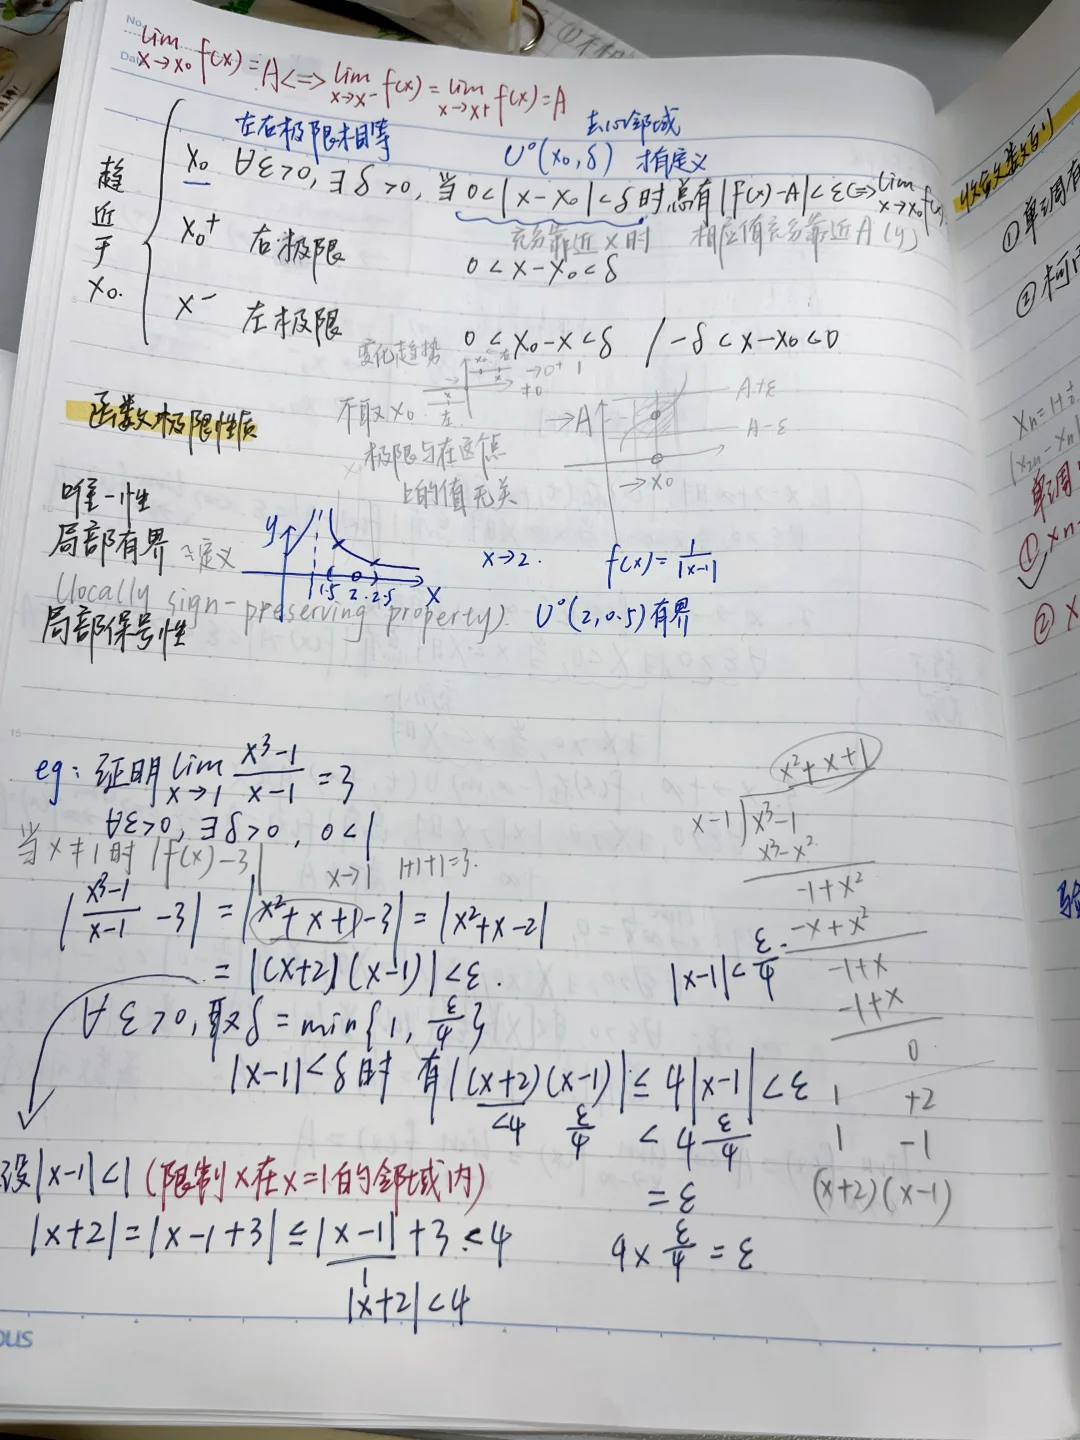 No.
Date
lim x→x₀ f(x)=A<=>lim x→x⁻ f(x)=lim x→x⁺ f(x)=A
左右极限相等
去心邻域
U°(x₀,δ) 有定义
趋近于x₀.
x₀ ∀ε>0,∃δ>0,当0<|x-x₀|<δ时总有|f(x)-A|<ε<=>lim x→x₀ f(x)
充分靠近x时 相应值充分靠近A(y)
x₀⁺ 右极限 0<x-x₀<δ
x⁻ 左极限 0<x₀-x<δ /-δ<x-x₀<0
变化趋势
→0⁺ 1
≠0
不取x₀ 左
极限与在这点
上的值无关
→A A+ε
A-ε
→x₀
函数极限性质
唯一性
局部有界
y x→2. f(x)=1/|x-1|
1 1.5 2 2.5 x
(locally sign-preserving property). U°(2,0.5)有界
局部保号性
eg:证明lim x→1 (x³-1)/(x-1)=3
∀ε>0,∃δ>0, 0<|
当x≠1时 |f(x)-3| x→1 1+1+1=3.
|(x³-1)/(x-1) -3|=|x²+x+1-3|=|x²+x-2|
=|(x+2)(x-1)|<ε. |x-1|<ε/4.
∀ε>0,取δ=min{1,ε/4}
|x-1|<δ时 有|(x+2)(x-1)|≤4|x-1|<ε
<4 ε/4 <4 ε/4
=ε
4×ε/4=ε
设|x-1|<1(限制x在x=1的邻域内)
|x+2|=|x-1+3|≤|x-1|+3<4
1
|x+2|<4
x²+x+1
x-1 x³-1
x³-x²
-1+x²
-x+x²
-1+x
-1+x
0
1 +2
1 -1
(x+2)(x-1)
①单调有
xₙ=1+
|x₂ₙ-xₙ|
单调
①xₙ
②x
验